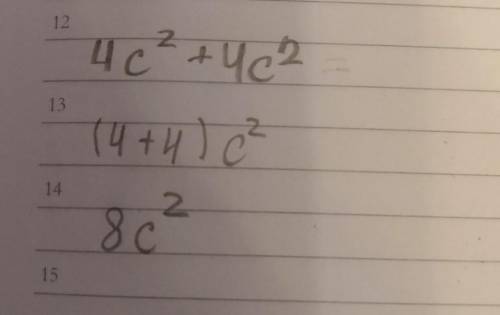 12
4c² + 4c² =
13
(4+4) c²
14
8c²
15